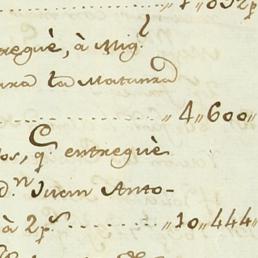 reguè, à Mig.l
para la Matanza
,, 4,,600,,
os, q.e entreguè
d.n Juan Anto-
à 2 p.s ,,10,,444,,